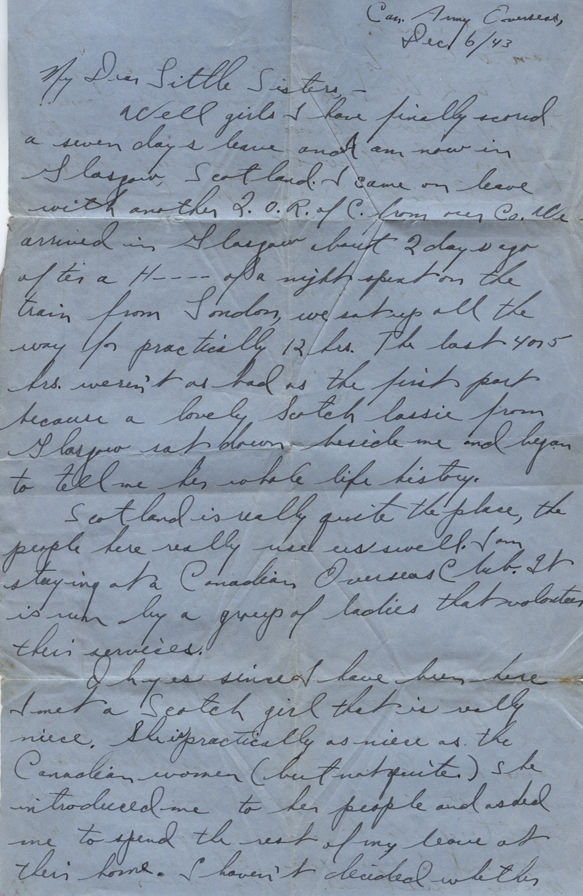 Can. Army Overseas,
Dec 6/43
My Dear Little Sisters -
Well girls I have finally scored
a seven days leave and am now in
Glasgow, Scotland. I came on leave
with another Q. O. R. of C. from our Co. We
arrived in Glasgow about 2 days ago
after a H---- of a night spent on the
train from London, we sat up all the
way for practically 12 hrs. The last 4 or 5
hrs. weren't as bad as the first part
because a lovely Scotch lassie from
Glasgow sat down beside me and began
to tell me her whole life history.
Scotland is really quite the place, the
people here really use us swell. I am
staying at a Canadian Overseas Club. It
is run by a group of ladies that volunteer
their services.
Oh yes since I have been here
I met a Scotch girl that is really
niece. She is practically as niece as the
Canadian women (but not quite.) She
introduced me to her people and asked
me to spend the rest of my leave at
their home. I haven't decided whether